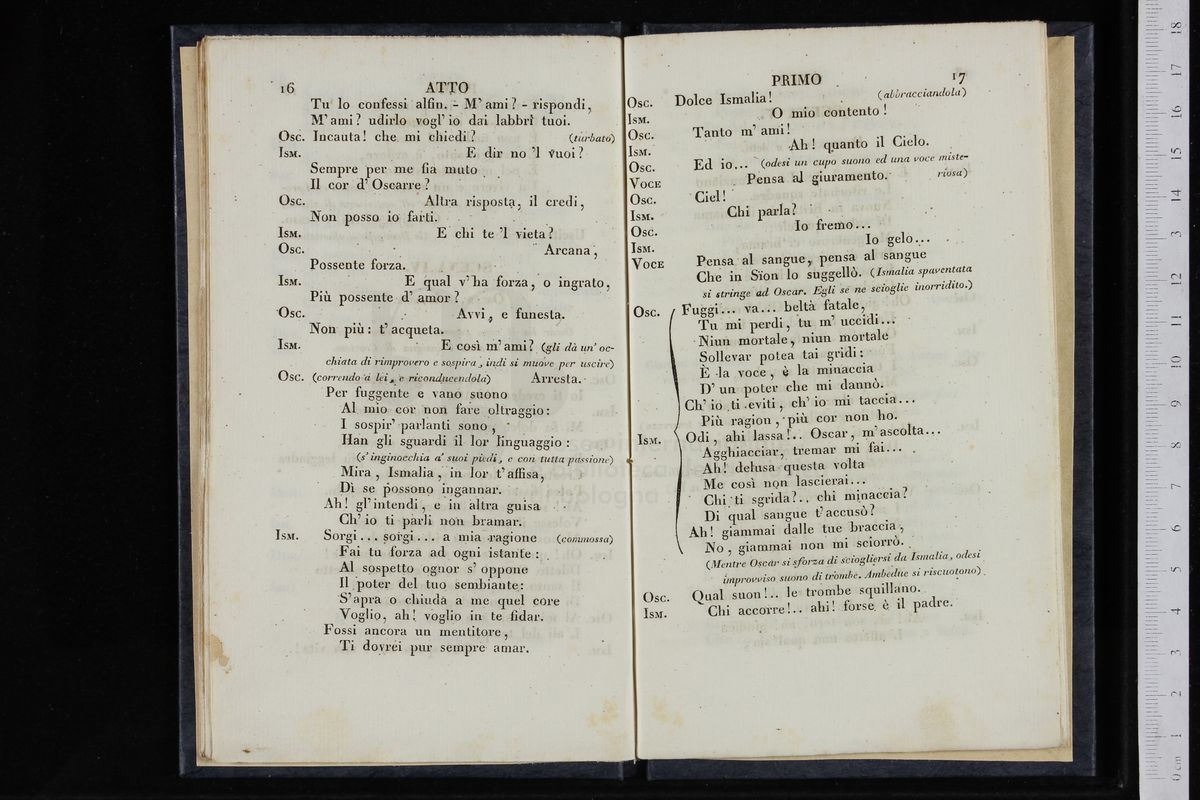 16 ATTO
Tu lo confessi alfin. - M' ami? - rispondi,
M' ami? udirlo vogl' io dai labbri tuoi.
Osc. Incauta! che mi chiedi? (turbato)
Ism. E dir no 'l vuoi?
Sempre per me fia muto
Il cor d' Oscarre?
Osc. Altra risposta, il credi,
Non posso io farti.
Ism. E chi te 'l vieta?
Osc. Arcana,
Possente forza.
Ism. E qual v' ha forza, o ingrato,
Più possente d' amor?
Osc. Avvi, e funesta.
Non più: t' acqueta.
Ism. E così m' ami? (gli dà un' oc-
chiata di rimprovero e sospira, indi si muove per uscire)
Osc. (correndo a lei, e riconducendola) Arresta.
Per fuggente e vano suono
Al mio cor non fare oltraggio:
I sospir' parlanti sono,
Han gli sguardi il lor linguaggio:
(s' inginocchia a' suoi piedi, e con tutta passione)
Mira, Ismalia, in lor t' affisa,
Dì se possono ingannar.
Ah! gl' intendi, e in altra guisa
Ch' io ti parli non bramar.
Ism. Sorgi... sorgi... a mia ragione (commossa)
Fai tu forza ad ogni istante:
Al sospetto ognor s' oppone
Il poter del tuo sembiante:
S' apra o chiuda a me quel core
Voglio, ah! voglio in te fidar.
Fossi ancora un mentitore,
Ti dovrei pur sempre amar.
PRIMO 17
Osc. Dolce Ismalia! (abbracciandola)
Ism. O mio contento!
Osc. Tanto m' ami!
Ism. Ah! quanto il Cielo.
Osc. Ed io... (odesi un cupo suono ed una voce miste-
Voce Pensa al giuramento. riosa)
Osc. Ciel!
Ism. Chi parla?
Osc. Io fremo...
Ism. Io gelo...
Voce Pensa al sangue, pensa al sangue
Che in Sïon lo suggellò. (Ismalia spaventata
si stringe ad Oscar. Egli se ne scioglie inorridito.)
Osc. Fuggi... va... beltà fatale,
Tu mi perdi, tu m' uccidi...
Niun mortale, niun mortale
Sollevar potea tai gridi:
È la voce, è la minaccia
D' un poter che mi dannò.
Ch' io ti eviti, ch' io mi taccia...
Più ragion, più cor non ho.
Ism. Odi, ahi lassa!.. Oscar, m' ascolta...
Agghiacciar, tremar mi fai...
Ah! delusa questa volta
Me così non lascierai...
Chi ti sgrida?.. chi minaccia?
Di qual sangue t' accusò?
Ah! giammai dalle tue braccia,
No, giammai non mi sciorrò.
(Mentre Oscar si sforza di sciogliersi da Ismalia, odesi
improvviso suono di trombe. Ambedue si riscuotono)
Osc. Qual suon!.. le trombe squillano.
Ism. Chi accorre!.. ahi! forse è il padre.
0 cm 1 2 3 4 5 6 7 8 9 10 11 12 13 14 15 16 17 18